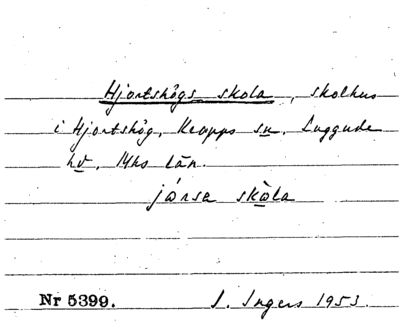 Hjortshögs skola, skolhus
i Hjortshög, Kropps sn, Luggude
hd, Mhs län.
jårsa skåla
Nr 5399.
I. Ingers 1953.